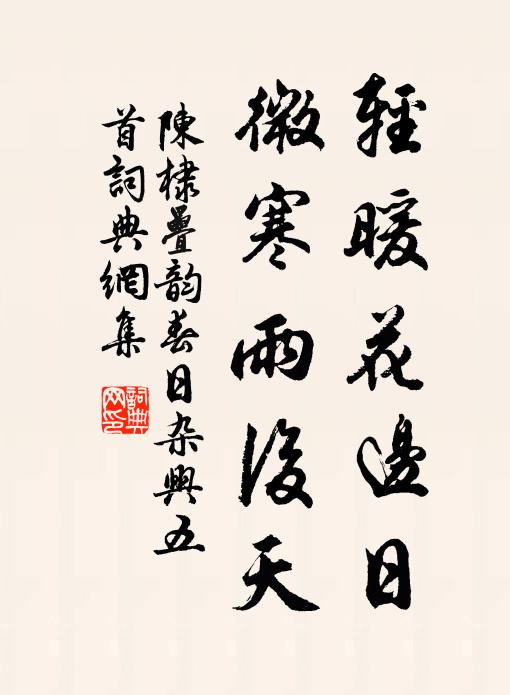 輕暖花邊日
微寒雨後天
陳棣疊韵春日杂興五
首詞典網集
詞典
网印